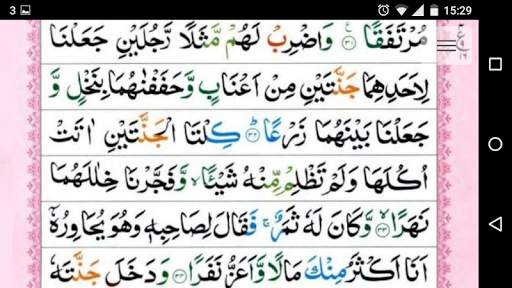 3 15:29
مُرْتَفَقًا ۝۳۱ وَاضْرِبْ لَهُمْ مَّثَلًا رَّجُلَيْنِ جَعَلْنَا
لِاَحَدِهِمَا جَنَّتَيْنِ مِنْ اَعْنَابٍ وَّحَفَفْنٰهُمَا بِنَخْلٍ وَّ
جَعَلْنَا بَيْنَهُمَا زَرْعًا ۝۳۲ كِلْتَا الْجَنَّتَيْنِ اٰتَتْ
اُكُلَهَا وَلَمْ تَظْلِمْ مِّنْهُ شَيْـًٔا وَّفَجَّرْنَا خِلٰلَهُمَا
نَهَرًا ۝۳۳ وَّكَانَ لَهٗ ثَمَرٌ ۚ فَقَالَ لِصَاحِبِهٖ وَهُوَ يُحَاوِرُهٗۤ
اَنَا اَكْثَرُ مِنْكَ مَالًا وَّاَعَزُّ نَفَرًا ۝۳۴ وَدَخَلَ جَنَّتَهٗ